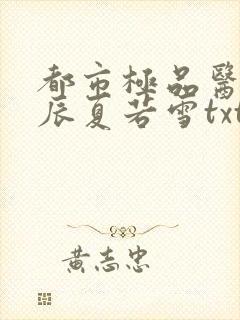 都市極品醫
辰夏若雪txt
黃志忠